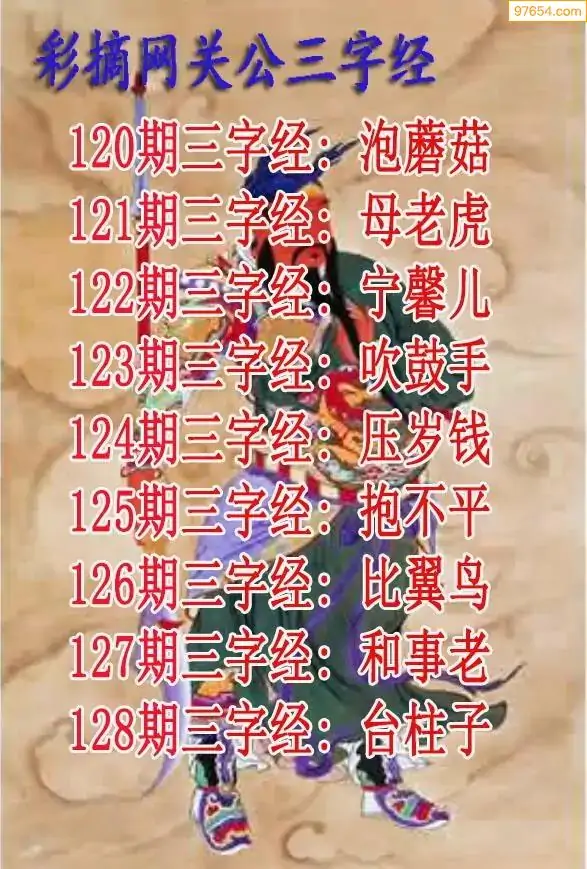 97654.com
彩摘网关公三字经
120期三字经：泡蘑菇
121期三字经：母老虎
122期三字经：宁馨儿
123期三字经：吹鼓手
124期三字经：压岁钱
125期三字经：抱不平
126期三字经：比翼鸟
127期三字经：和事老
128期三字经：台柱子